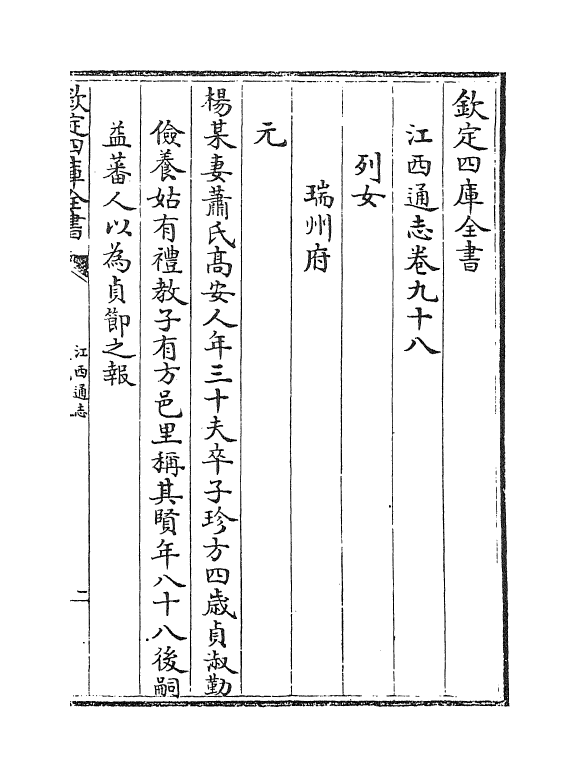 欽定四庫全書
江西通志卷九十八
列女
瑞州府
元
楊某妻蕭氏髙安人年三十夫卒子珍方四歲貞淑勤
儉養姑有禮教子有方邑里稱其賢年八十八後嗣
益蕃人以為貞節之報
欽定四庫全書
江西通志
二